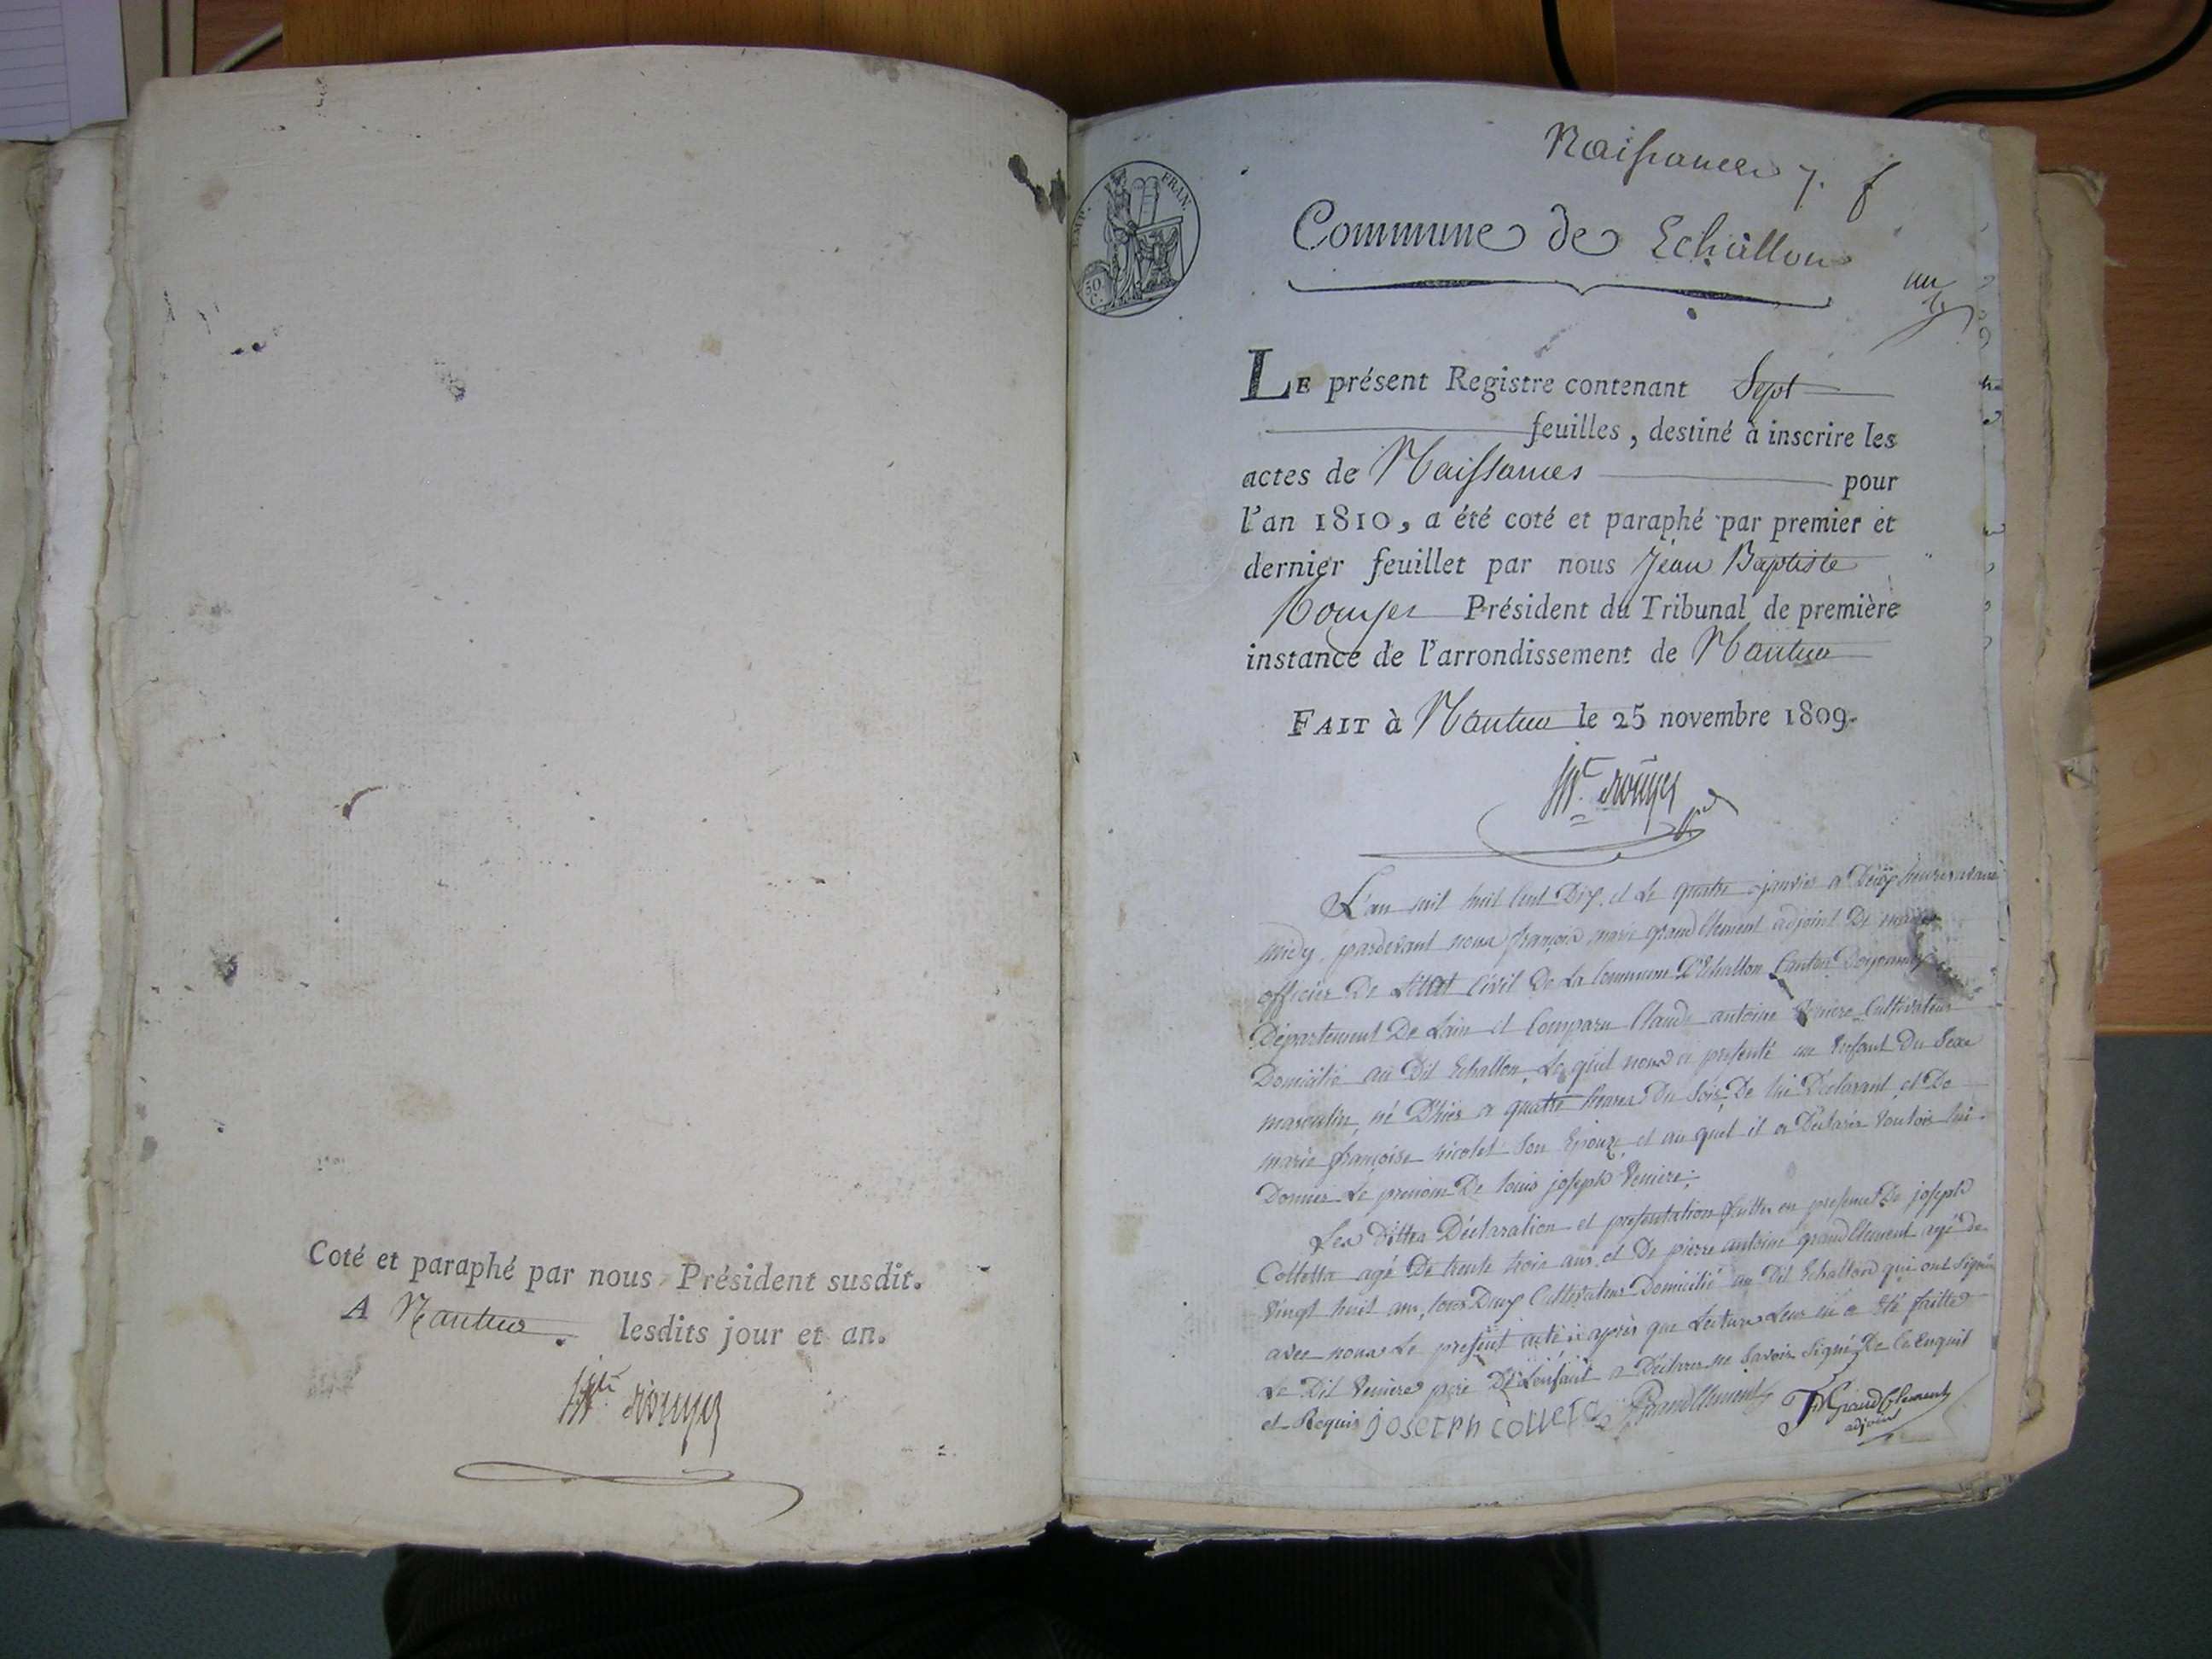 Coté et paraphé par nous Président susdit.
A Nantua lesdits jour et an.
Jn Bte Rouyer
Naissances 7. f
EMP. FRAN.
50 C.
Commune de Echallon
un
LE présent Registre contenant Sept
feuilles, destiné à inscrire les
actes de Naissances pour
l'an 1810, a été coté et paraphé par premier et
dernier feuillet par nous Jean Baptiste
Rouyer Président du Tribunal de première
instance de l'arrondissement de Nantua
FAIT à Nantua le 25 novembre 1809.
Rouyer
L'an mil huit Cent Dix, et Le quatre janvier a Deux heures avant
midy, pardevant nous françois marie grandClement adjoint De maire
officier De Létat Civil De La Commune D'Echallon Canton Doyonnax
Département De Lain et Comparu Claude antoine Veniere Cultivateur
Domicilié au Dit Echallon, Lequel nous a presenté un Enfant Du Sexe
masculin, né D'hier a quatre heures Du Soir, De lui Déclarant, et De
marie françoise nicolet Son Epouze, et au quel il a Déclarer Vouloir lui
Donner Le prenom De louis joseph Veniere;
Les Dittes Déclaration et presentation faittes en presence De joseph
Colletta agé De trente trois ans, et De pierre antoine grandClement agé de
Vingt huit ans, tous Deux Cultivateur Domicilié au Dit Echallon qui ont Signé
avec nous Le present acte après que Lecture Leur en a Eté faitte
Le Dit Veniere pere De Lenfant a Déclarer ne Savoir Signé De Ce Enquit
et Requis joseph colleta GrandClement FM GrandClement
adjoint